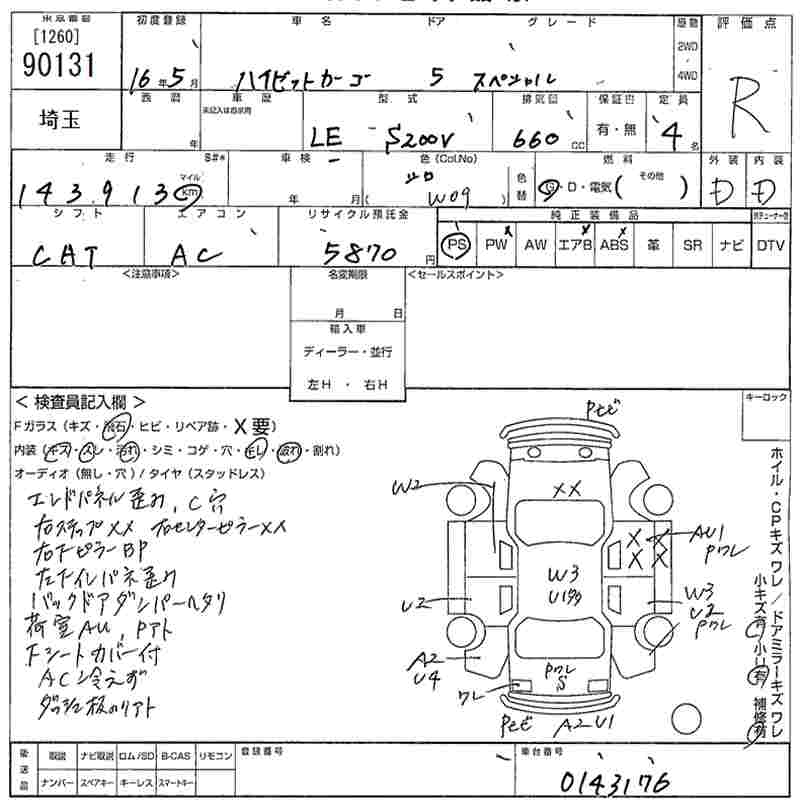 [1260]
90131
埼玉
初度登録
16年5月
車名
ハイゼットカーゴ
ドア
5
グレード
スペシャル
駆動
2WD
4WD
評価点
R
西暦
年
車歴
未記入は自家用
型式
LE S200V
排気量
660cc
保証書
有・無
定員
4名
走行
S#*
143,913
マイル
km
車検
年 月
色(Col.No)
W09
色替
燃料
G・D・電気(その他)
外装
D
内装
D
シフト
CAT
エアコン
AC
リサイクル預託金
5870円
純正装備品
PS PW AW エアB ABS 革 SR ナビ DTV
<注意事項>
名変期限
月 日
輸入車
ディーラー・並行
左H・右H
<セールスポイント>
<検査員記入欄>
Fガラス(キズ・飛石・ヒビ・リペア跡・X要)
内装(キズ・スレ・汚れ・シミ・コゲ・穴・モレ・破れ・割れ)
オーディオ(無し・穴)/タイヤ(スタッドレス)
エンドパネル歪み,C穴
右ステップXX 右センターピラーXX
右下ピラーBP
バックドアダンパーヘタリ
荷室AU,Pアト
Fシートカバー付
AC冷えず
キーロック
ホイル・CPキズ ワレ/ドアミラーキズ ワレ
小キズ有 小U有 補修有
Pセビ
W2
XX
X X
X X
AU1
Pワレ
W3
W3
U2
U2
Pワレ
A2
U4
Pワレ
S
ワレ
Pセビ
A2U1
後送品
取説 ナビ取説 ロム/SD B-CAS リモコン
ナンバー スペアキー キーレス スマートキー
登録番号
車台番号
0143176